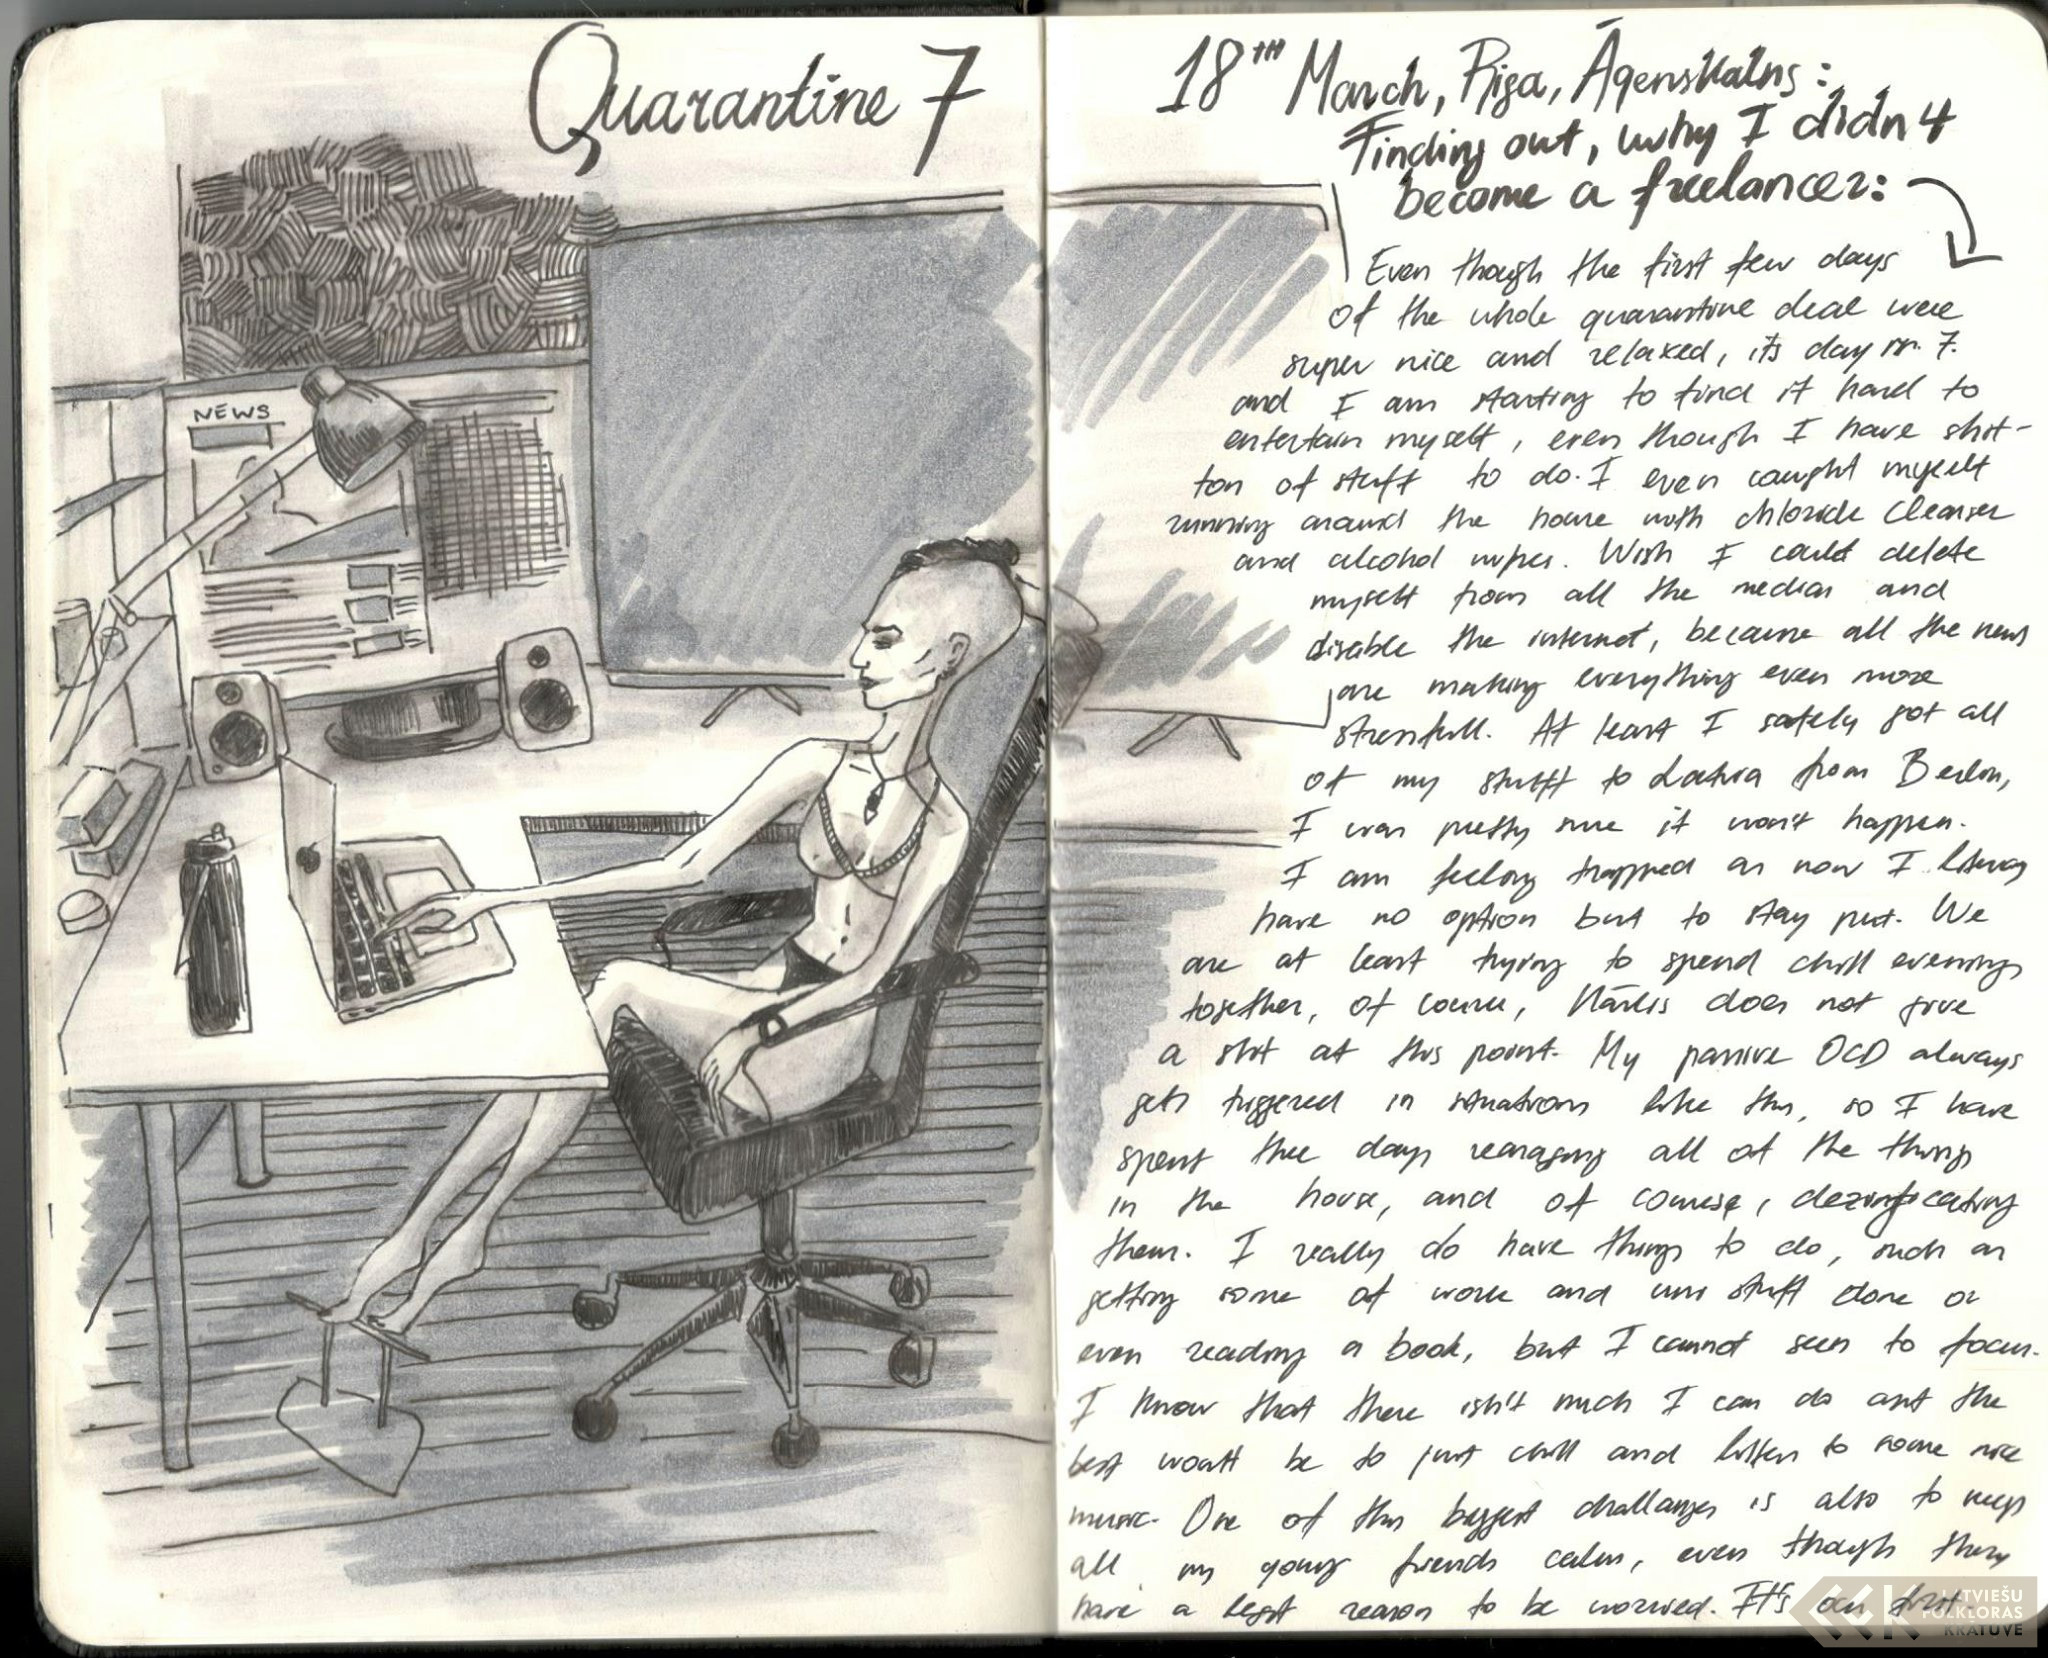 Quarantine 7
NEWS
18TH March, Riga, Āgenskalns:
Finding out, why I didn't
become a freelancer:
Even though the first few days
of the whole quarantine deal were
super nice and relaxed, its day nr. 7.
and I am starting to find it hard to
entertain myself, even though I have shit-
ton of stuff to do. I even caught myself
running around the house with chloride cleanser
and alcohol wipes. Wish I could delete
myself from all the medias and
disable the internet, because all the news
are making everything even more
stressfull. At least I safely got all
of my stuff to Latvia from Berlin,
I was pretty sure it won't happen.
I am feeling trapped as now I
have no option but to stay put. We
are at least trying to spend chill evenings
together, of course, Kārlis does not give
a shit at this point. My passive OCD always
gets triggered in situations like this, so I have
spent thee days rearaging all of the things
in the house, and of course, dezinficating
them. I really do have things to do, such as
getting some of work and uni stuff done or
even reading a book, but I cannot seem to focus.
I know that there isn't much I can do ant the
best woatt be to just chill and listen to some nice
music. One of this biggest challanges is also to keep
all my young friends calm, even though they
have a legit reason to be worried. It's our first
LATVIEŠU
FOLKLORAS
KRĀTUVE